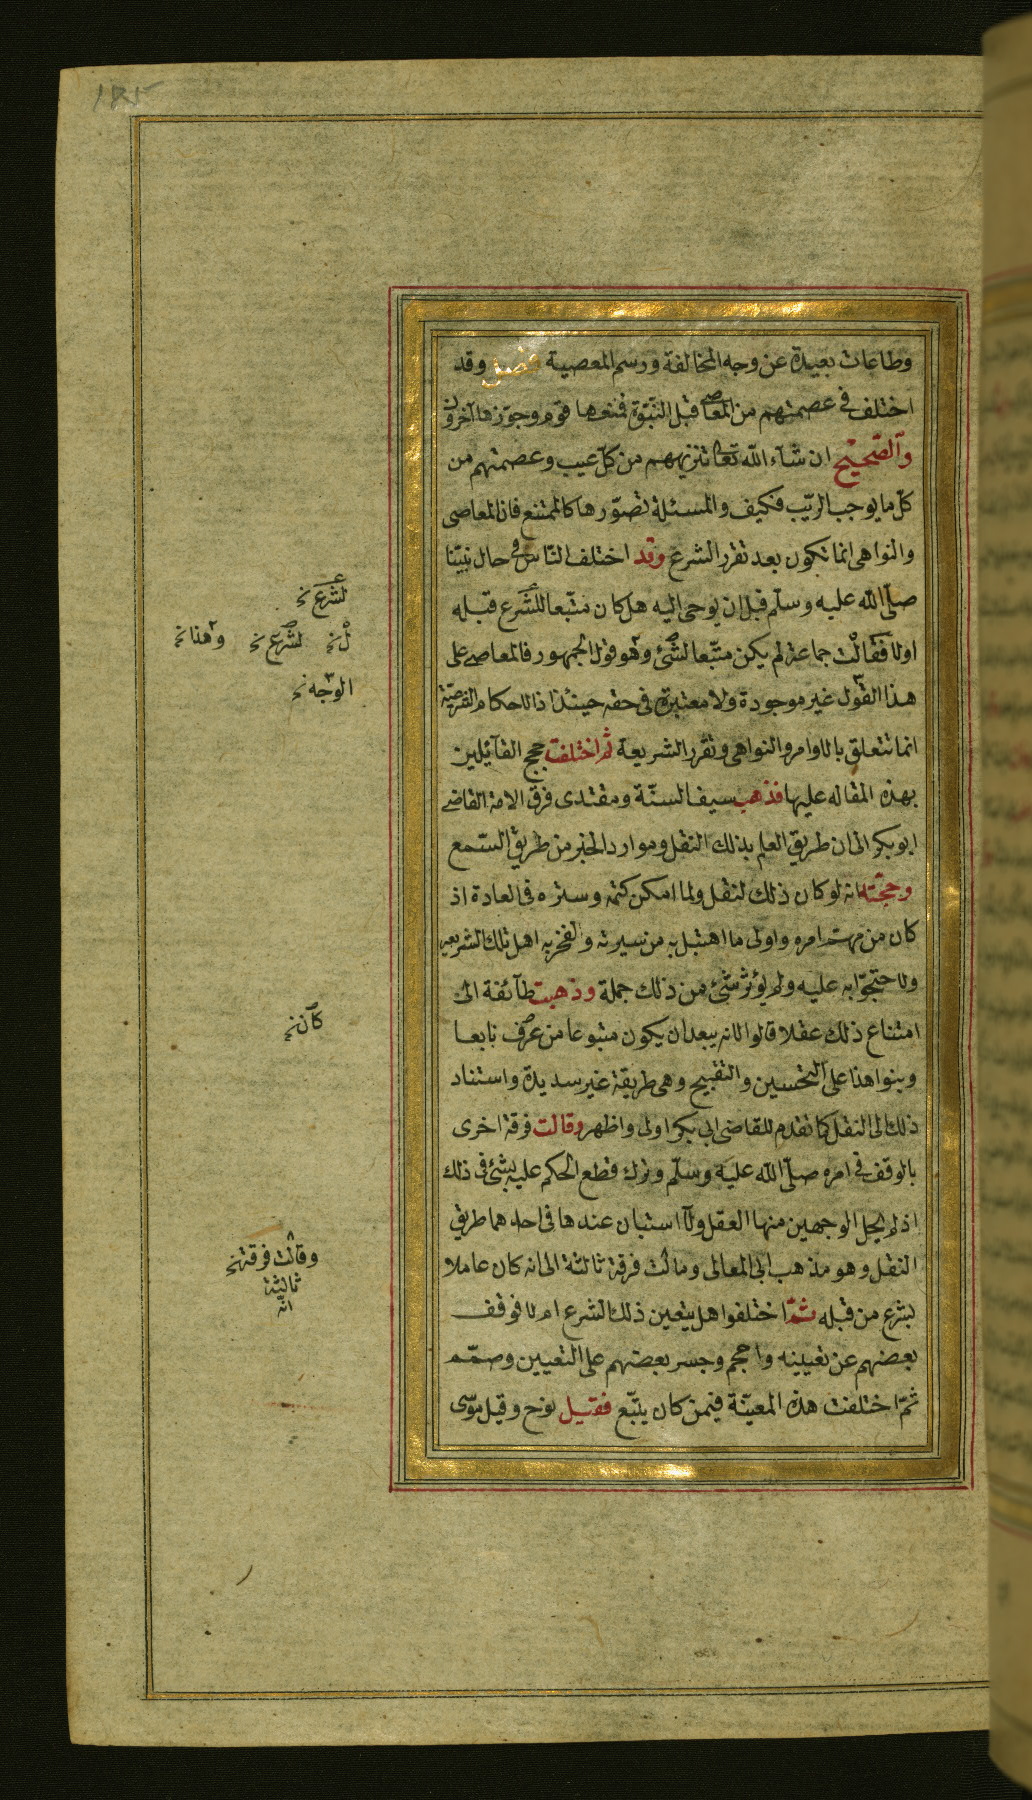 وطاعات بعيدة عن وجه المخالفة ورسم المعصية فصل وقد
اختلف في عصمتهم من المعاصي قبل النبوّة فمنعها قوم وجوّزها آخرون
والصّحيح ان شآء اللّه تعالى تنزيههم من كلّ عيب وعصمتهم من
كلّ ما يوجب الريّب فكيف والمسئلة تصوّرها كالممتنع فان المعاصى
والنواهى انما تكون بعد تقرر الشرع وقد اختلف النّاس فى حال نبيّنا
صلّى اللّه عليه وسلّم قبل ان يوحى اليه هل كان متّبعا للشرع قبله
اولا فقالت جماعة لم يكن متّبعا لشئ وهو قول الجمهور فالمعاصى على
هذا القول غير موجودة ولا معتبرة فى حقه حينئذ اذ الاحكام الشرعيّة
انما تتعلق بالاوامر والنواهى وتقرر الشريعة ثم اختلفت حجج القآئيلين
بهذه المقاله عليها فذهب سيف السنّة ومقتدى فرق الامة القاضى
ابو بكر الى ان طريق العلم بذلك النقل وموارد الخبر من طريق السّمع
وحجّته انه لو كان ذلك لنقل ولما امكن كتمه وستره فى العادة اذ
كان من مهمّ امره واولى ما اهتبل به من سيرته ولفخر به اهل تلك الشريعة
ولاحتجّوا به عليه ولم يؤثر شئ من ذلك جملة وذهبت طآئفة الى
امتناع ذلك عقلا قالوا لانه يبعد ان يكون متبوعا من عرف تابعا
وبنوا هذا على التحسين والتقبيح وهى طريقة غير سديدة واستناد
ذلك الى النقل كما تقدم للقاضى ابى بكر اولى واظهر وقالت فرقة اخرى
بالوقف فى امره صلّى اللّه عليه وسلّم وترك قطع الحكم عليه بشئ فى ذلك
اذ لم يحل الوجهين منها العقل ولا استبان عندها فى احدهما طريق
النقل وهو مذهب ابى المعالى ومالت فرقة ثالثة الى انه كان عاملا
بشرع من قبله ثمّ اختلفوا هل يتعين ذلك الشرع ام لا فوقف
بعضهم عن تعيينه واحجم وجسر بعضهم على التعيين وصمّم
ثمّ اختلفت هذه المعيّنة فيمن كان يتّبع فقيل نوح وقيل موسى
لشرع نخ
لشرع نخ وهذا نخ
الوجه نخ
كان نخ
وقالت فرقة نخ
ثالثة
انّه